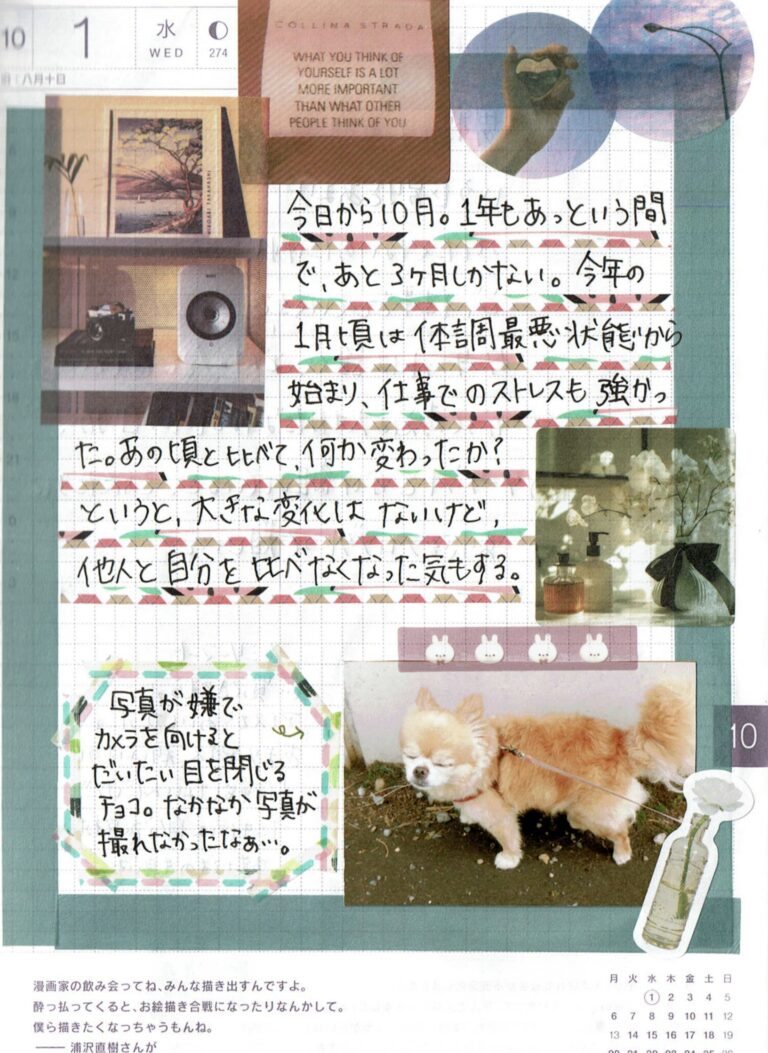 10
1
水
WED
274
旧|八月十日
COLLINA STRADA
WHAT YOU THINK OF
YOURSELF IS A LOT
MORE IMPORTANT
THAN WHAT OTHER
PEOPLE THINK OF YOU
今日から10月。1年もあっという間
で、あと3ヶ月しかない。今年の
1月頃は体調最悪状態から
始まり、仕事でのストレスも強かっ
た。あの頃と比べて、何か変わったか?
というと、大きな変化はないけど、
他人と自分を比べなくなった気もする。
写真が嫌で
カメラを向けると
だいたい目を閉じる
チョコ。なかなか写真が
撮れなかったなぁ…。
10
漫画家の飲み会ってね、みんな描き出すんですよ。
酔っ払ってくると、お絵描き合戦になったりなんかして。
僕ら描きたくなっちゃうもんね。
―― 浦沢直樹さんが
月 火 水 木 金 土 日
1 2 3 4 5
6 7 8 9 10 11 12
13 14 15 16 17 18 19